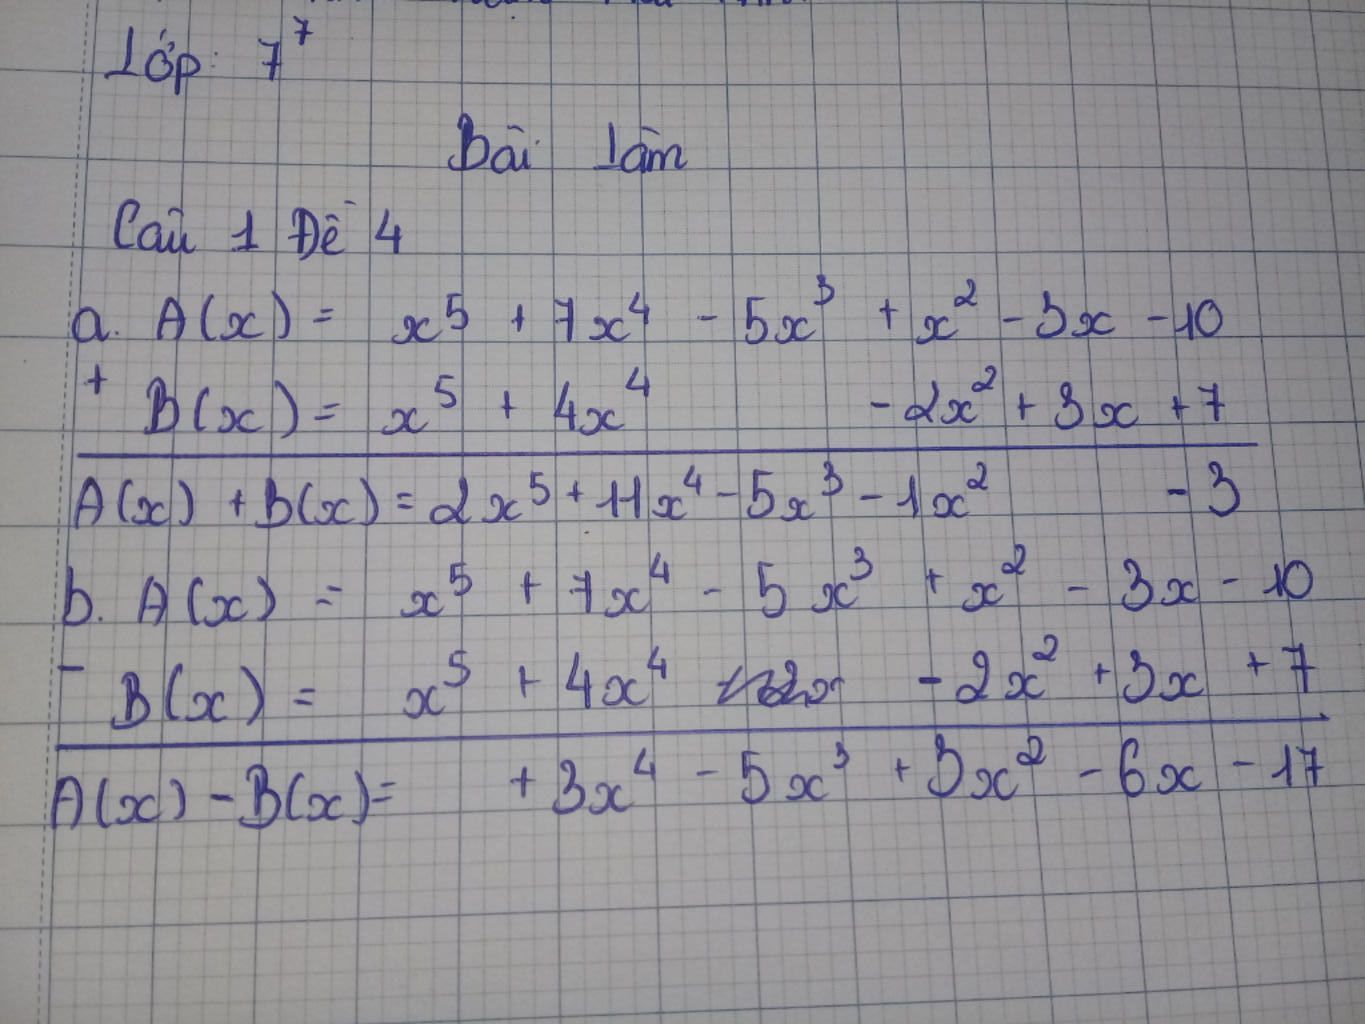 Lớp: 7⁷
Bài làm
Câu 1 Đề 4
a. A(x) = x⁵ + 7x⁴ - 5x³ + x² - 3x - 10
+ B(x) = x⁵ + 4x⁴ - 2x² + 3x + 7
A(x) + B(x) = 2x⁵ + 11x⁴ - 5x³ - 1x² - 3
b. A(x) = x⁵ + 7x⁴ - 5x³ + x² - 3x - 10
- B(x) = x⁵ + 4x⁴ - 2x² + 3x + 7
A(x) - B(x) = + 3x⁴ - 5x³ + 3x² - 6x - 17